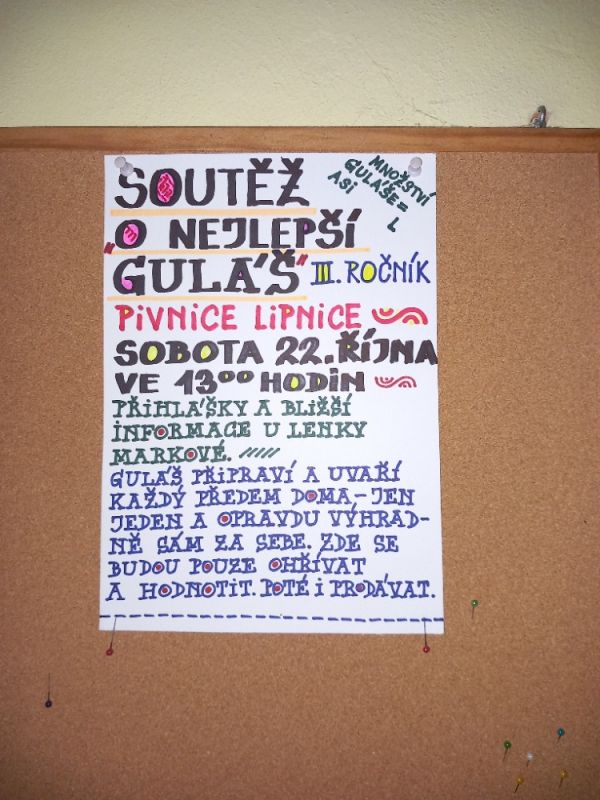 SOUTĚŽ
„O NEJLEPŠÍ
GULÁŠ" III. ROČNÍK
MNOŽSTVÍ
GULÁŠE =
ASI L
PIVNICE LIPNICE
SOBOTA 22. ŘÍJNA
VE 13⁰⁰ HODIN
PŘIHLÁŠKY A BLIŽŠÍ
INFORMACE U LENKY
MARKOVÉ.
GULÁŠ PŘIPRAVÍ A UVAŘÍ
KAŽDÝ PŘEDEM DOMA - JEN
JEDEN A OPRAVDU VÝHRAD-
NĚ SÁM ZA SEBE. ZDE SE
BUDOU POUZE OHŘÍVAT
A HODNOTIT. POTÉ i PRODÁVAT.